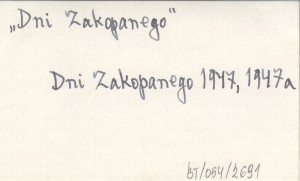 „Dni Zakopanego"
Dni Zakopanego 1947, 1947a
BT/054/2691